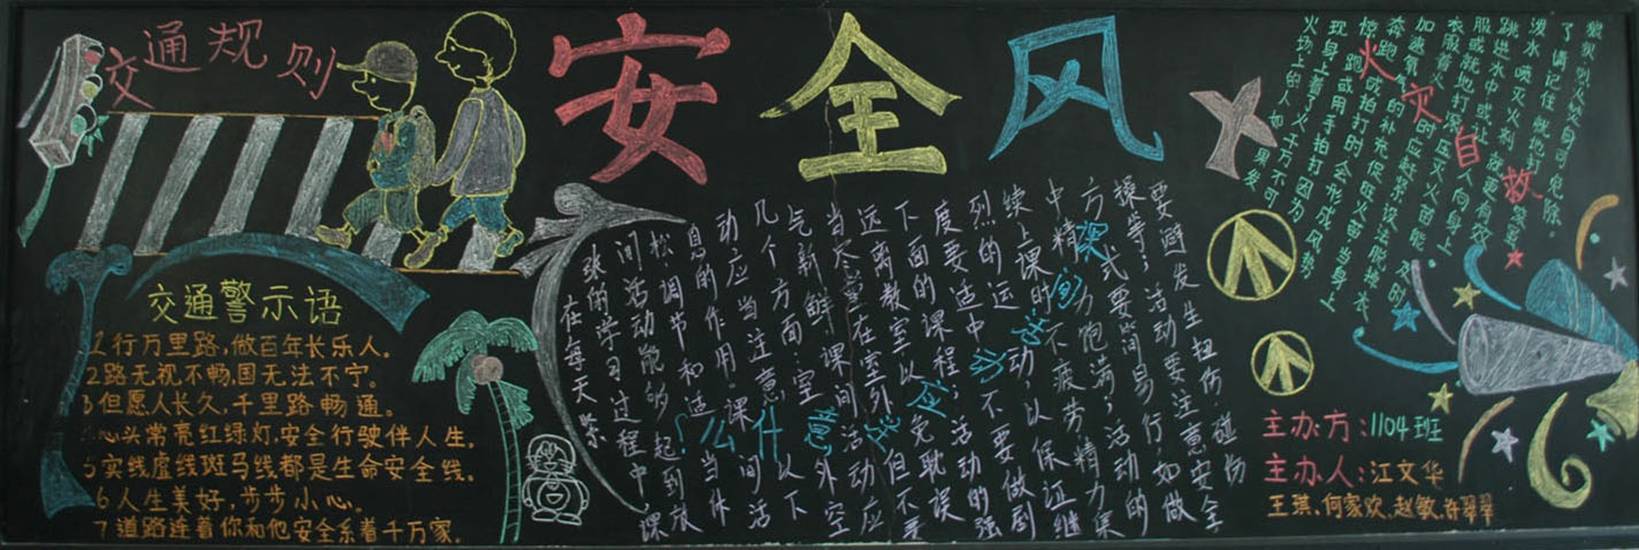 交通规则
安全风
交通警示语
1行万里路,做百年长乐人。
2路无视不畅,国无法不宁。
3但愿人长久,千里路畅通。
心头常亮红绿灯,安全行驶伴人生。
5实线虚线斑马线都是生命安全线。
6人生美好,步步小心。
7道路连着你和他安全系着千万家。
课间活动应注意什么?
在每天紧
张的学习过程中课
间活动能够起到放
松调节和适当休
息的作用。课间活
动应当注意以下
几个方面:室外空
气新鲜课间活动应
当尽量在室外但不要
远离教室以免耽误
下面的课程;活动的强
度要适中不要做剧
烈的运动,以保证继
续上课时不疲劳精力集
中精力饱满;活动的
方式要简易行,如做
操等;活动要注意安全
要避发生扭伤碰伤
火灾自救
火场上的人如果发
现身上着了火千万不可
惊跑或用手拍打因为
奔跑或拍打时会形成风势
加速氧气的补充促旺火苗当身上
衣服着火时应赶紧设法脱掉衣
服或就地打滚压灭火苗能及时
跳进水中或让人向身上
浇水喷灭火剂就更有效
了请记住就地打
主办方:1104班
主办人:江文华
王琪,何家欢,赵敏,许翠翠